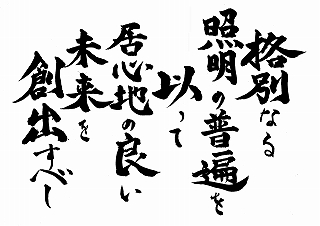 格別なる
照明の普遍を
以って
居心地の良い
未来を
創出すべし